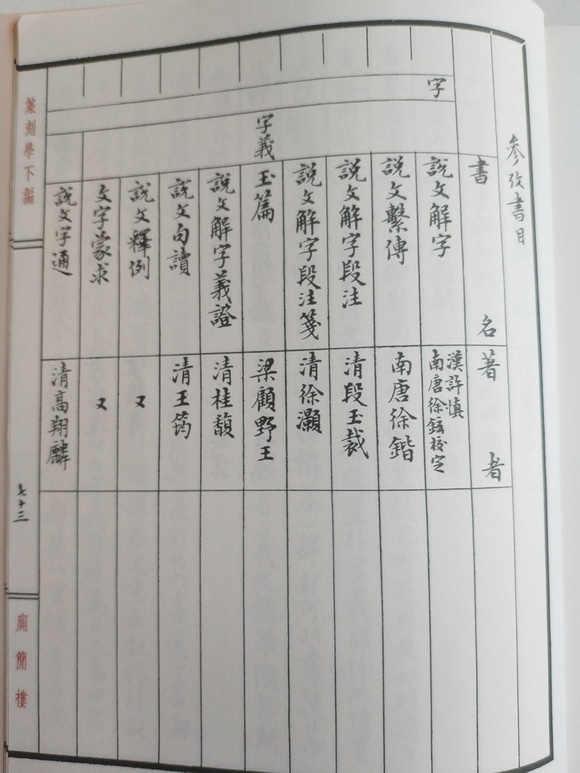 參攷書目
書名 著者
字
字義
說文解字 漢許慎 南唐徐鉉校定
說文繫傳 南唐徐鍇
說文解字段注 清段玉裁
說文解字段注箋 清徐灝
玉篇 梁顧野王
說文解字義證 清桂馥
說文句讀 清王筠
說文釋例 又
文字蒙求 又
說文字通 清高翔麟
篆刻學下編
七十三